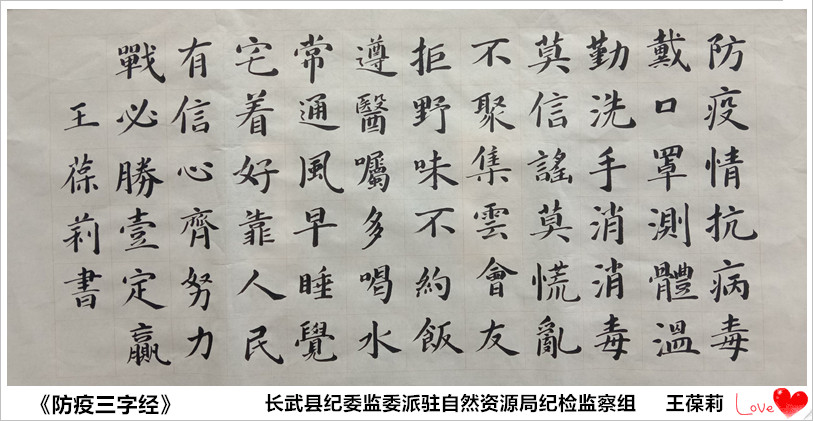 防疫情抗病毒
戴口罩測體溫
勤洗手消消毒
莫信謠莫慌亂
不聚集雲會友
拒野味不約飯
遵醫囑多喝水
常通風早睡覺
宅着好靠人民
有信心齊努力
戰必勝壹定贏
王葆莉書
《防疫三字经》 长武县纪委监委派驻自然资源局纪检监察组 王葆莉 Love